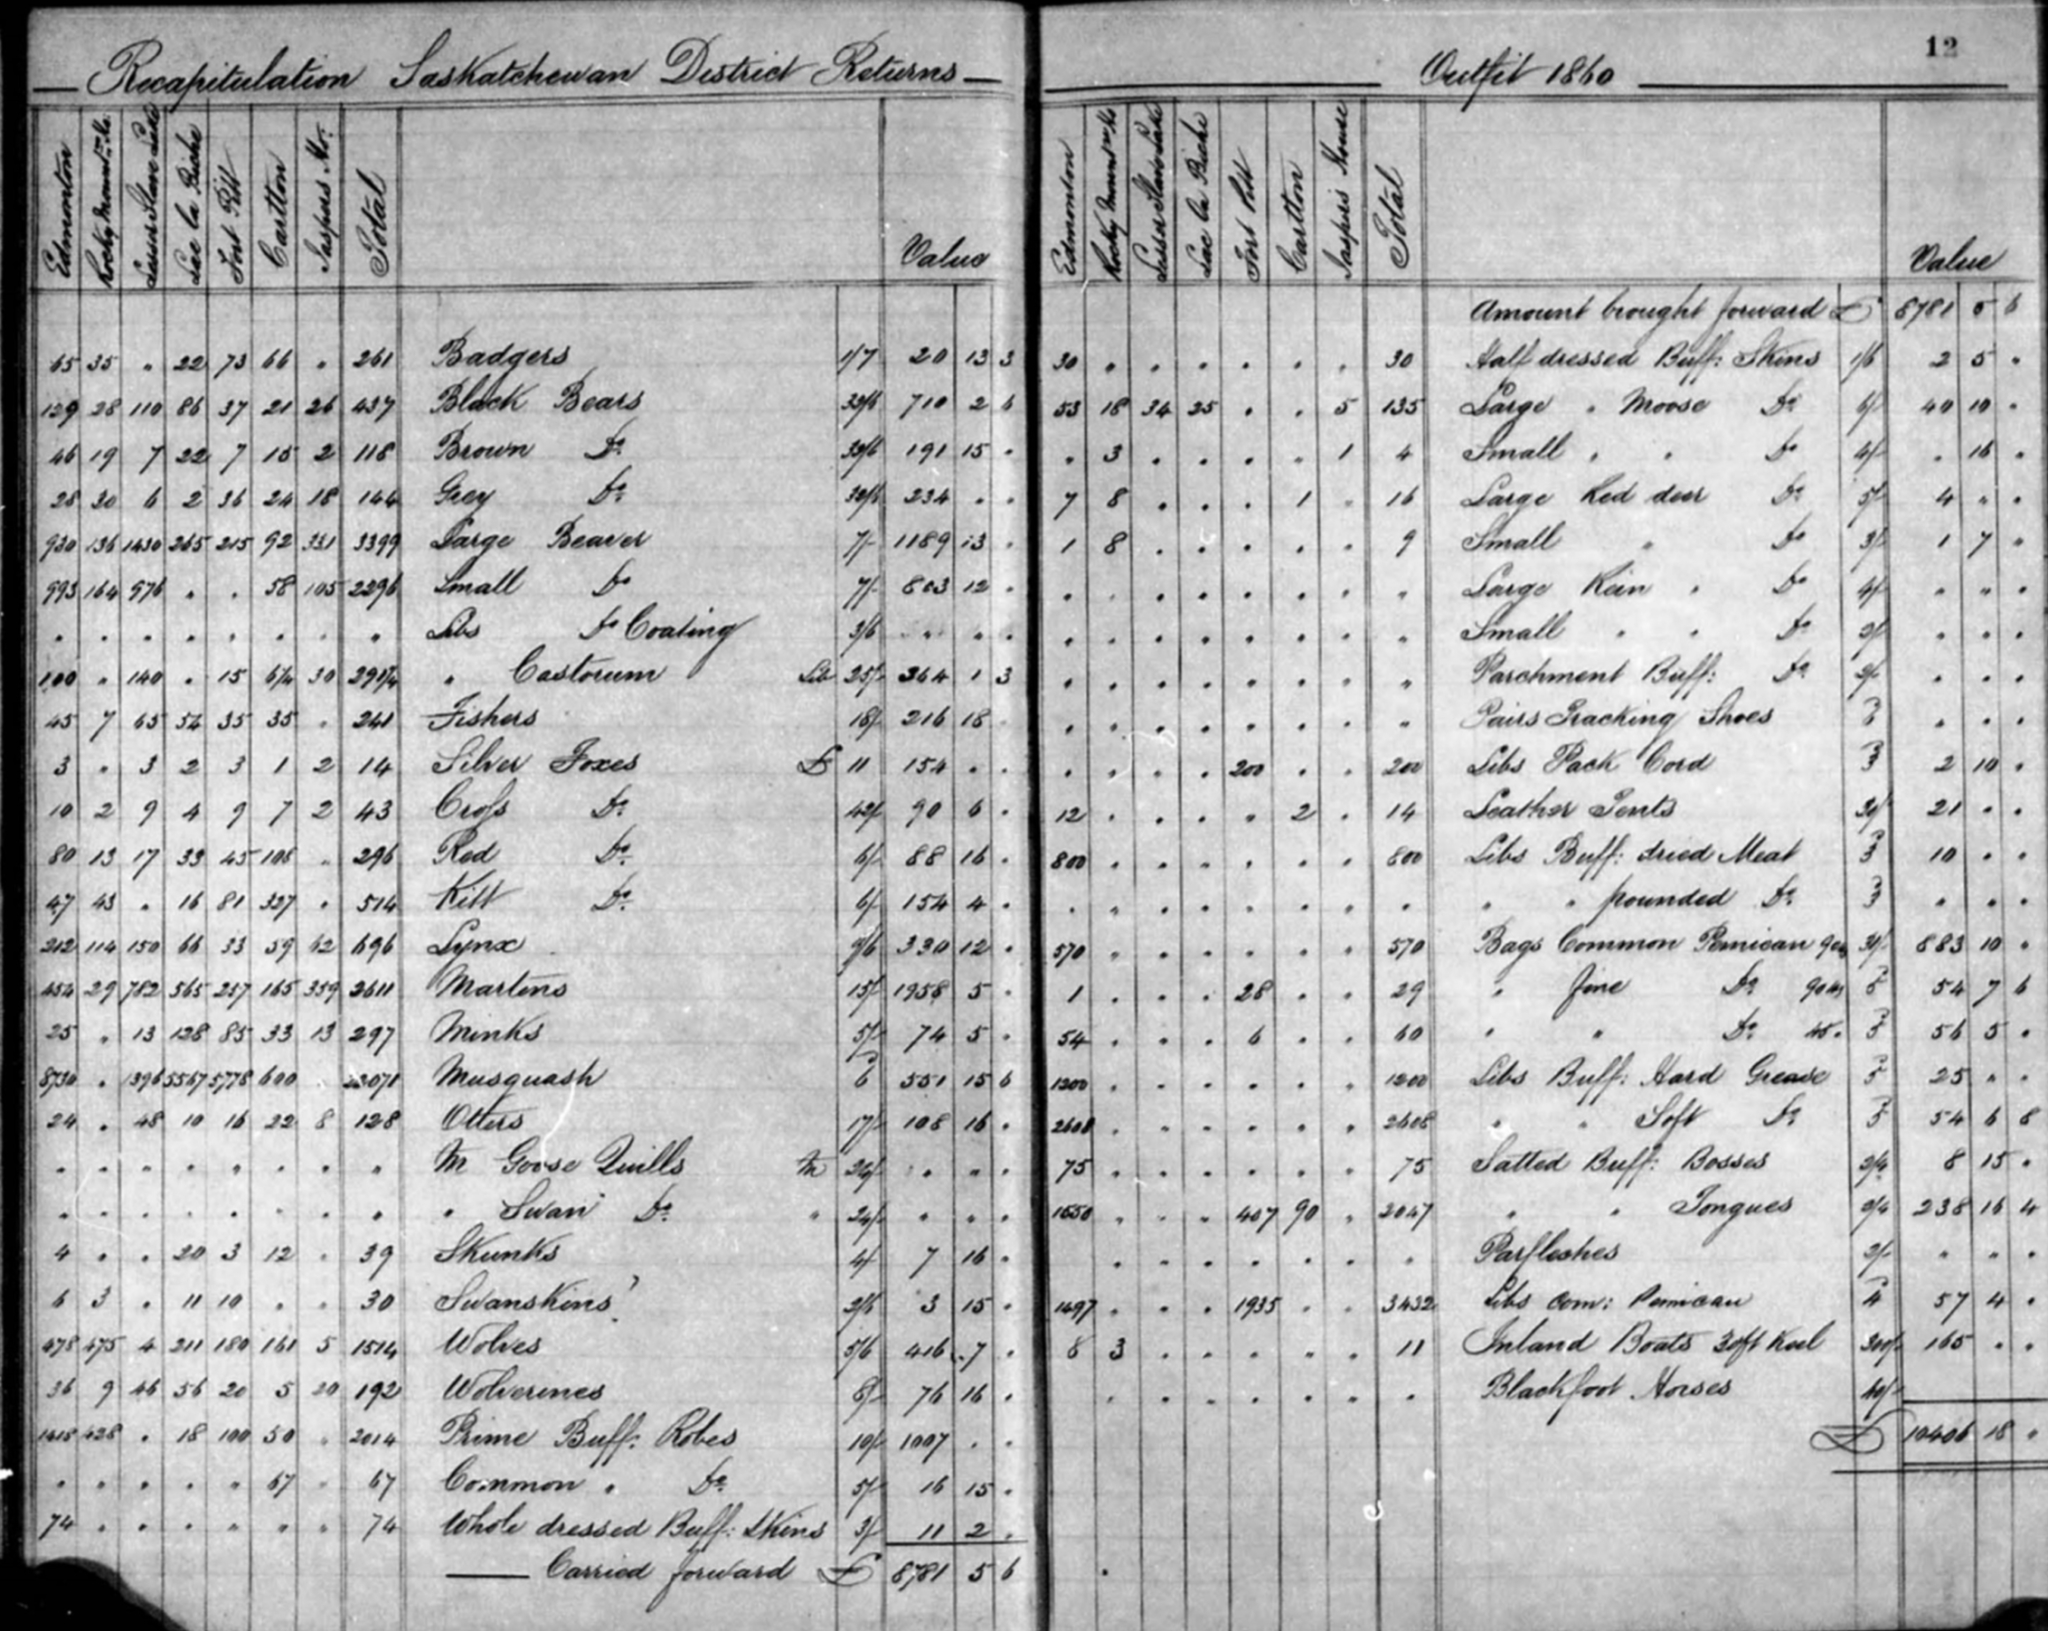 Recapitulation Saskatchewan District Returns
Edmonton Rocky Mountn Ho. Lesser Slave Lake Lac la Biche Fort Pitt Carlton Jaspers Ho. Total Value
65 35 " 22 73 66 " 261 Badgers 1/7 20 13 3
129 28 110 86 37 21 26 437 Black Bears 32/6 710 2 6
46 19 7 22 7 15 2 118 Brown Do 32/6 191 15 "
28 30 6 2 36 24 18 144 Grey Do 32/6 234 " "
930 136 1430 265 215 92 331 3399 Large Beaver 7/- 1189 13 "
993 164 976 " " 58 105 2296 Small Do 7/- 803 12 "
" " " " " " " " Lbs Do Coating 3/6 " " "
100 " 140 " 15 6¼ 30 291¼ " Castorum Lb 25/- 364 1 3
45 7 65 54 35 35 " 241 Fishers 18/- 216 18
3 " 3 2 3 1 2 14 Silver Foxes £ 11 154 " "
10 2 9 4 9 7 2 43 Cross Do 42/- 90 6 "
80 13 17 33 45 108 " 296 Red Do 6/- 88 16 "
47 43 " 16 81 327 " 514 Kitt Do 6/- 154 4 "
212 114 150 66 33 59 62 696 Lynx 9/6 330 12 "
454 29 782 565 257 165 359 2611 Martens 15/- 1958 5 "
25 " 13 128 85 33 13 297 Minks 5/- 74 5 "
8730 " 1396 5567 5778 600 " 22071 Musquash 6 551 15 6
24 " 48 10 16 22 8 128 Otters 17/- 108 16 "
" " " " " " " " M Goose Quills M 24/- " " "
" " " " " " " " " Swan Do " 24/- " " "
4 " " 20 3 12 " 39 Skunks 4/- 7 16 "
6 3 " 11 10 " " 30 Swanskins 2/6 3 15 "
478 475 4 211 180 161 5 1514 Wolves 5/6 416 7 "
36 9 46 56 20 5 20 192 Wolverines 8/- 76 16 "
1418 428 " 18 100 50 " 2014 Prime Buff: Robes 10/- 1007 " "
" " " " " 67 " 67 Common " Do 5/- 16 15 "
74 " " " " " " 74 Whole dressed Buff: Skins 3/- 11 2 "
Carried forward £ 8781 5 6
12
Outfit 1860
Edmonton Rocky Mountn Ho Lesser Slave Lake Lac la Biche Fort Pitt Carlton Jaspers House Total Value
Amount brought forward £ 8781 5 6
30 " " " " " " 30 Half dressed Buff: Skins 1/6 2 5 "
53 18 34 25 " " 5 135 Large " Moose Do 6/- 40 10 "
" 3 " " " " 1 4 Small " " Do 4/- " 16 "
7 8 " " " 1 " 16 Large Red deer Do 5/- 4 " "
1 8 " " " " " 9 Small " Do 3/- 1 7 "
" " " " " " " " Large Rein " Do 4/- " " "
" " " " " " " " Small " " Do 2/- " " "
" " " " " " " " Parchment Buff: Do 2/- " " "
" " " " " " " " Pairs Tracking Shoes 6 " " "
" " " " 200 " " 200 Lbs Pack Cord 3 2 10 "
12 " " " " 2 " 14 Leather Tents 30/- 21 " "
800 " " " " " " 800 Lbs Buff: dried Meat 3 10 " "
" " " " " " " " " " pounded Do 3 " " "
570 " " " " " " 570 Bags Common Pemican 90 lb 31/- 883 10 "
1 " " " 28 " " 29 " fine Do 90 lb 5 54 7 6
54 " " " 6 " " 60 " " Do 45 " 5 56 5 "
1200 " " " " " " 1200 Lbs Buff: Hard Grease 5 25 " "
2608 " " " " " " 2608 " " Soft Do 5 54 6 8
75 " " " " " " 75 Salted Buff: Bosses 2/4 8 15 "
1550 " " " 407 90 " 2047 " " Tongues 2/4 238 16 4
" " " " " " " " Parfleches 2/- " " "
1497 " " " 1935 " " 3432 Lbs com: Pemican 4 57 4 "
8 3 " " " " " 11 Inland Boats 30ft Keel 300/- 165 " "
" " " " " " " " Blackfoot Horses 40/-
£ 10406 18 "